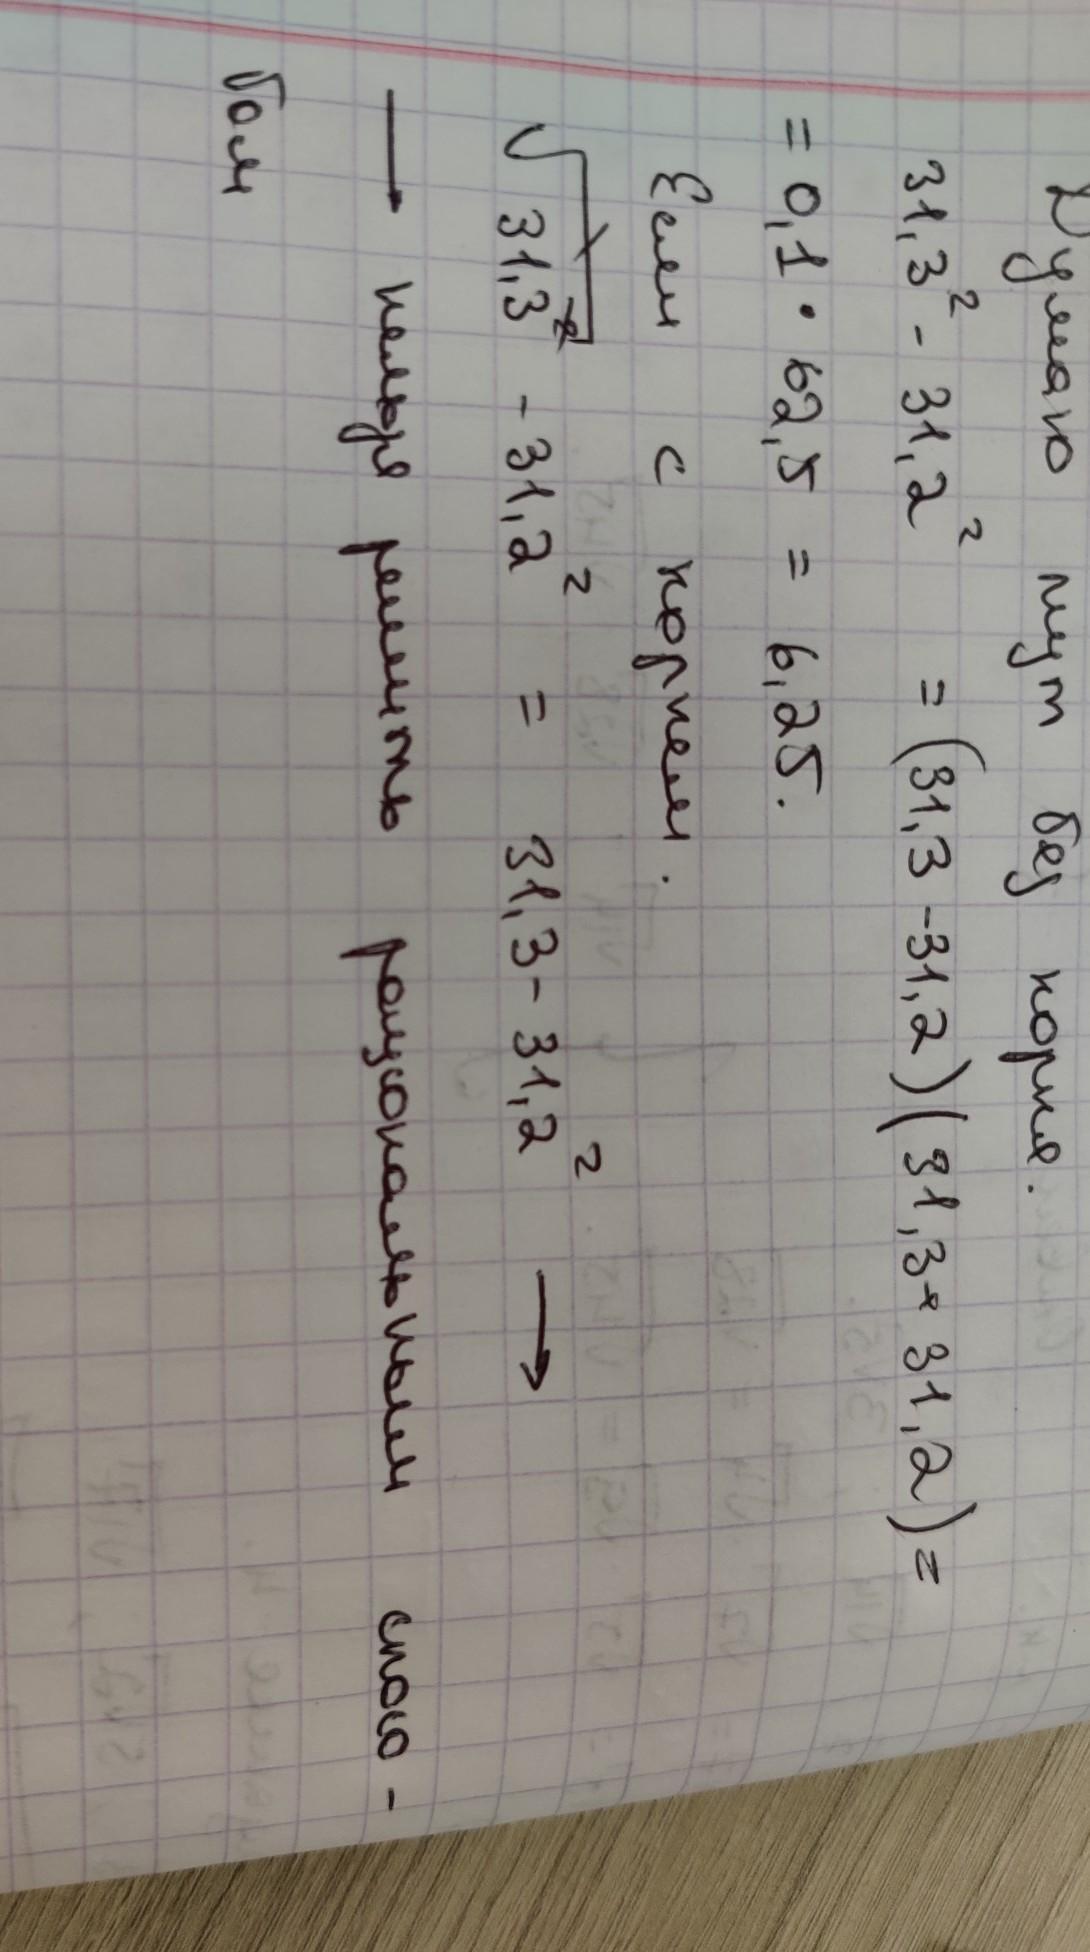 Думаю тут без корня.
31,3² - 31,2² = (31,3 - 31,2)(31,3 + 31,2) =
= 0,1 · 62,5 = 6,25.
Если с корнем.
√31,3² - 31,2² = 31,3 - 31,2² →
→ нельзя решить рациональным спосо-
бом